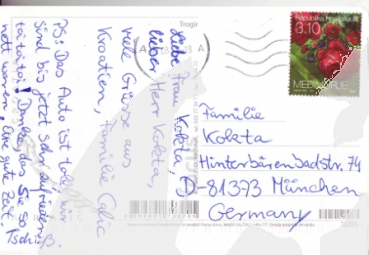 Trogir
Republika Hrvatska
3.10
Liebe Frau Kokta,
lieber Herr Kokta,
viele Grüsse aus
Kroatien, Familie
PS: Das Auto ist toll, wir
sind bis jetzt sehr zufrieden!
toi toi toi! Danke, dass Sie so
nett waren. Eine gute Zeit.
Familie
Kokta
Hinterbärenbadstr. 74
D-81373 München
Germany